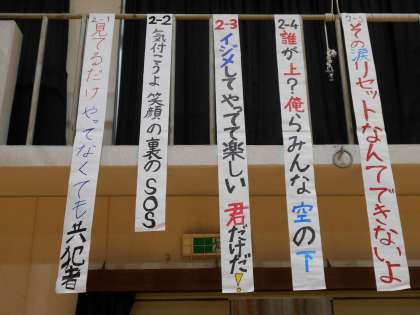 2-1
見てるだけ やってなくても 共犯者
2-2
気付こうよ 笑顔の裏の SOS
2-3
イジメしてやってて楽しい 君だけだ!
2-4
誰が上?俺らみんな 空の下
2-5
その涙リセットなんてできないよ